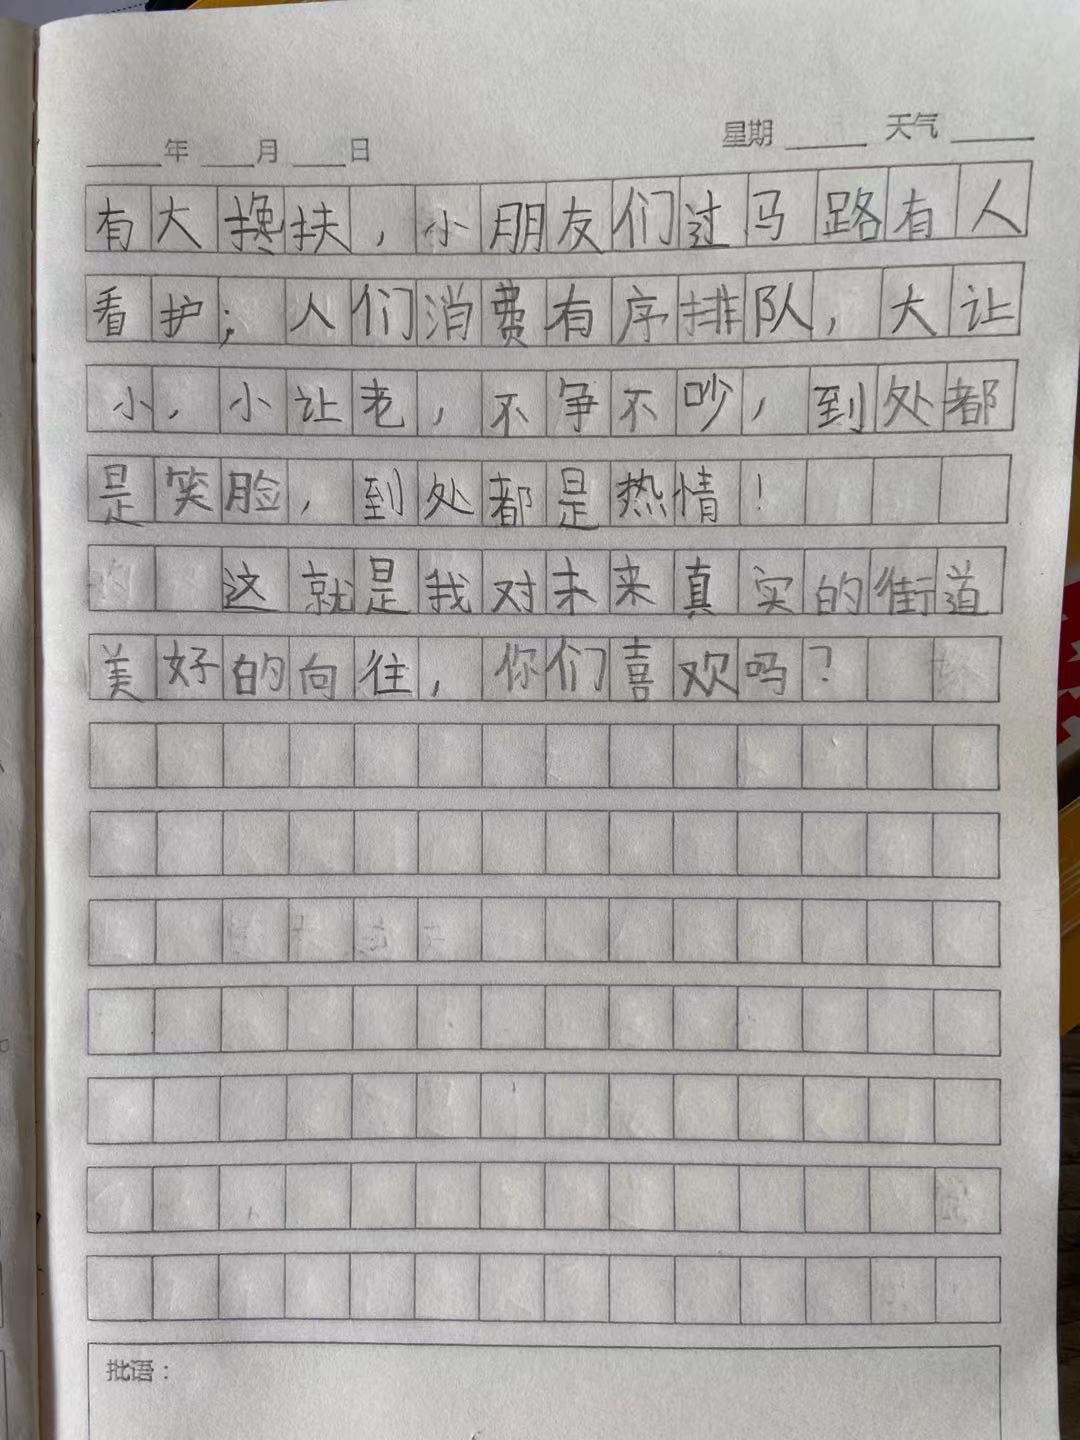 年 月 日 星期 天气
有大换扶，小朋友们过马路有人
看护；人们消费有序排队，大让
小，小让老，不争不吵，到处都
是笑脸，到处都是热情！
这就是我对未来真实的街道
美好的向往，你们喜欢吗？
批语：